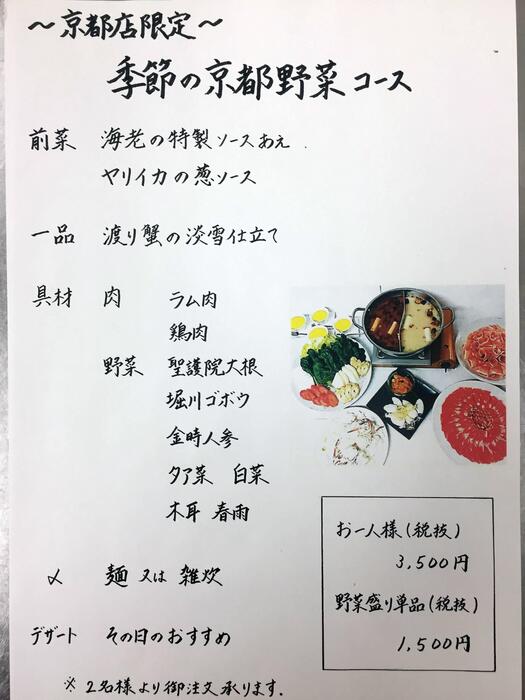 ～京都店限定～
季節の京都野菜コース
前菜 海老の特製ソースあえ
ヤリイカの葱ソース
一品 渡り蟹の淡雪仕立て
具材 肉 ラム肉
鶏肉
野菜 聖護院大根
堀川ゴボウ
金時人参
タア菜 白菜
木耳 春雨
〆 麺 又は 雑炊
デザート その日のおすすめ
※2名様より御注文承ります.
お一人様(税抜)
3,500円
野菜盛り単品(税抜)
1,500円